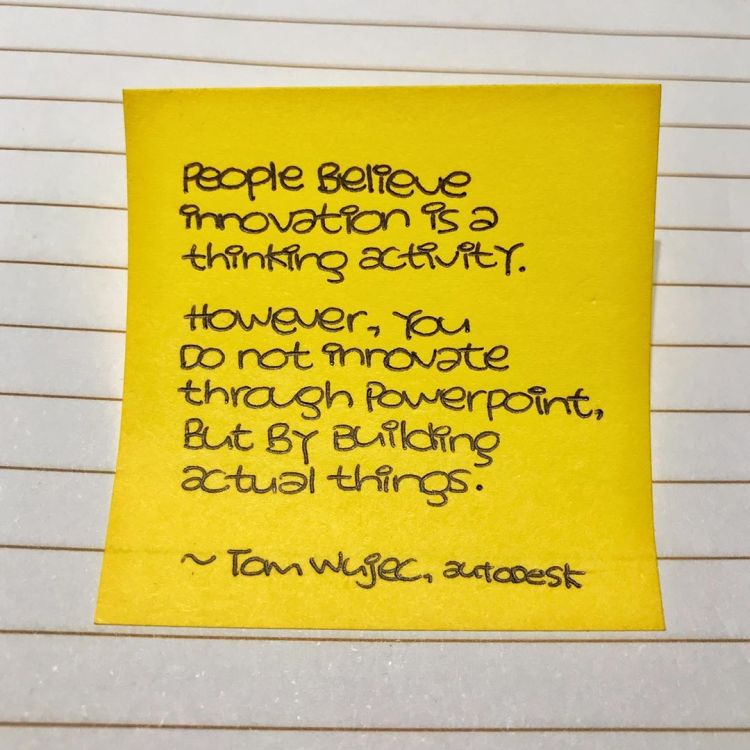 People Believe
innovation is a
thinking activity.
However, you
Do not innovate
through Powerpoint,
But By Building
actual things.
~ Tom Wujec, autodesk